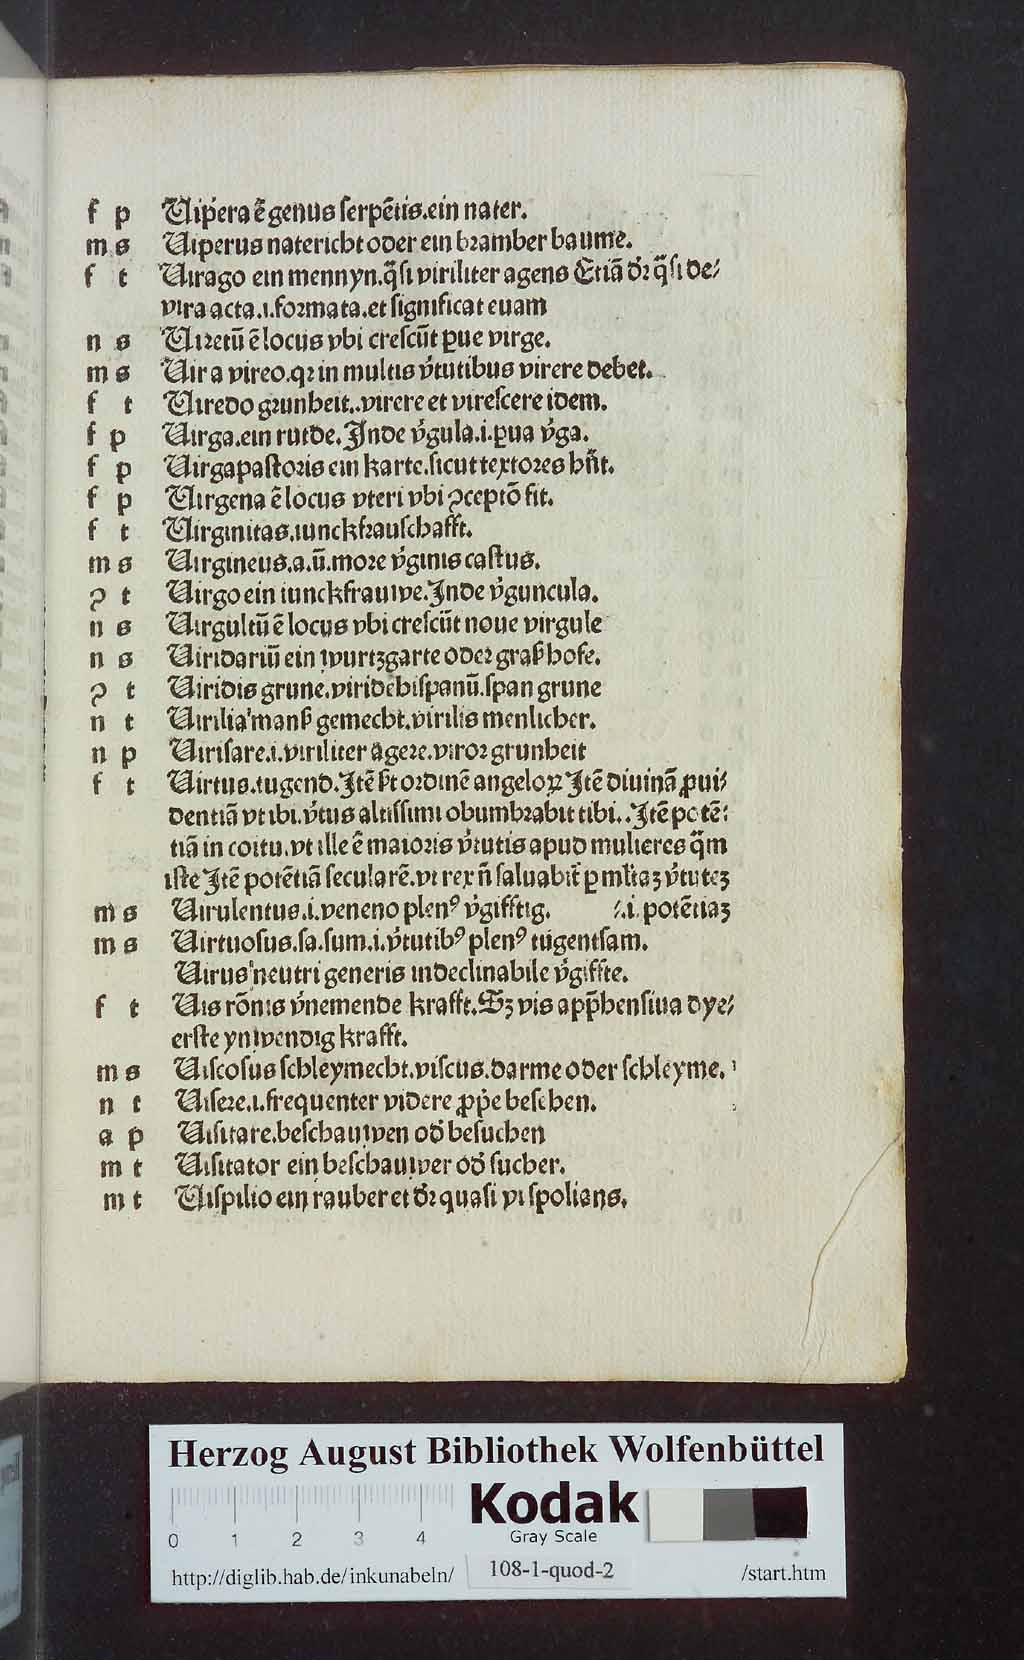 f p Uip̄era ē genus ſerpētis.ein nater.
m s Uiperus natericht oder ein bramber baume.
f t Uirago ein mennyn.q̄ſi viriliter agens Etiā dr̄ q̄ſi de⸗
vira acta.i.formata.et ſignificat euam
n s Uiretū ē locus vbi creſcūt ꝑue virge.
m s Uir a vireo.qꝛ in multis v̓tutibus virere debet.
f t Uiredo grunheit..virere et vireſcere idem.
f p Uirga.ein rutde.Inde v̓gula.i.ꝑua v̓ga.
f p Uirgapaſtoris ein karte.ſicut textores hn̄t.
f p Uirgena ē locus vteri vbi ꝯceptō fit.
f t Uirginitas.iunckfrauſchafft.
m s Uirgineus.a.ū.more v̓ginis caſtus.
ꝯ t Uirgo ein iunckfrauwe.Inde v̓guncula.
n s Uirgultū ē locus vbi creſcūt noue virgule
n s Uiridariū ein wurtzgarte oder graßhofe.
ꝯ t Uiridis grune.viridehiſpanū.ſpan grune
n t Uirilia manß gemecht.virilis menlicher.
n p Uiriſare.i.viriliter agere.viror grunheit
f t Uirtus.tugend.Itē ßt ordinē angeloꝝ Itē diuinā ꝓui⸗
dentiā vt ibi.v̓tus altiſſimi obumbrabit tibi..Itē potē⸗
tiā in coitu.vt ille ē maioris v̓tutis apud mulieres q̄m
iſte Itē potētiā ſecularē.vt rex n̄ ſaluabit̄ ꝑ mltāꝫ v̓tuteꝫ
m s Uirulentus.i.veneno plenꝰ v̓gifftig. ⸗.i.potētiaꝫ
m s Uirtuoſus.ſa.ſum.i.v̓tutibꝰ plenꝰ tugentſam.
Uirus neutri generis indeclinabile v̓giffte.
f t Uis rōnis v̓nemende krafft.Sꝫ vis app̄henſiua dye⸗
erſte ynwendig krafft.
m s Uiſcoſus ſchleymecht.viſcus.darme oder ſchleyme.
n t Uiſere.i.frequenter videre ꝓp̄e beſehen.
a p Uiſitare.beſchauwen od̓ beſuchen
m t Uiſitator ein beſchauwer od̓ ſucher.
m t Uiſpilio ein rauber et dr̄ quaſi vi ſpolians.
Herzog August Bibliothek Wolfenbüttel
0 1 2 3 4
Kodak
Gray Scale
http://diglib.hab.de/inkunabeln/ 108-1-quod-2 /start.htm